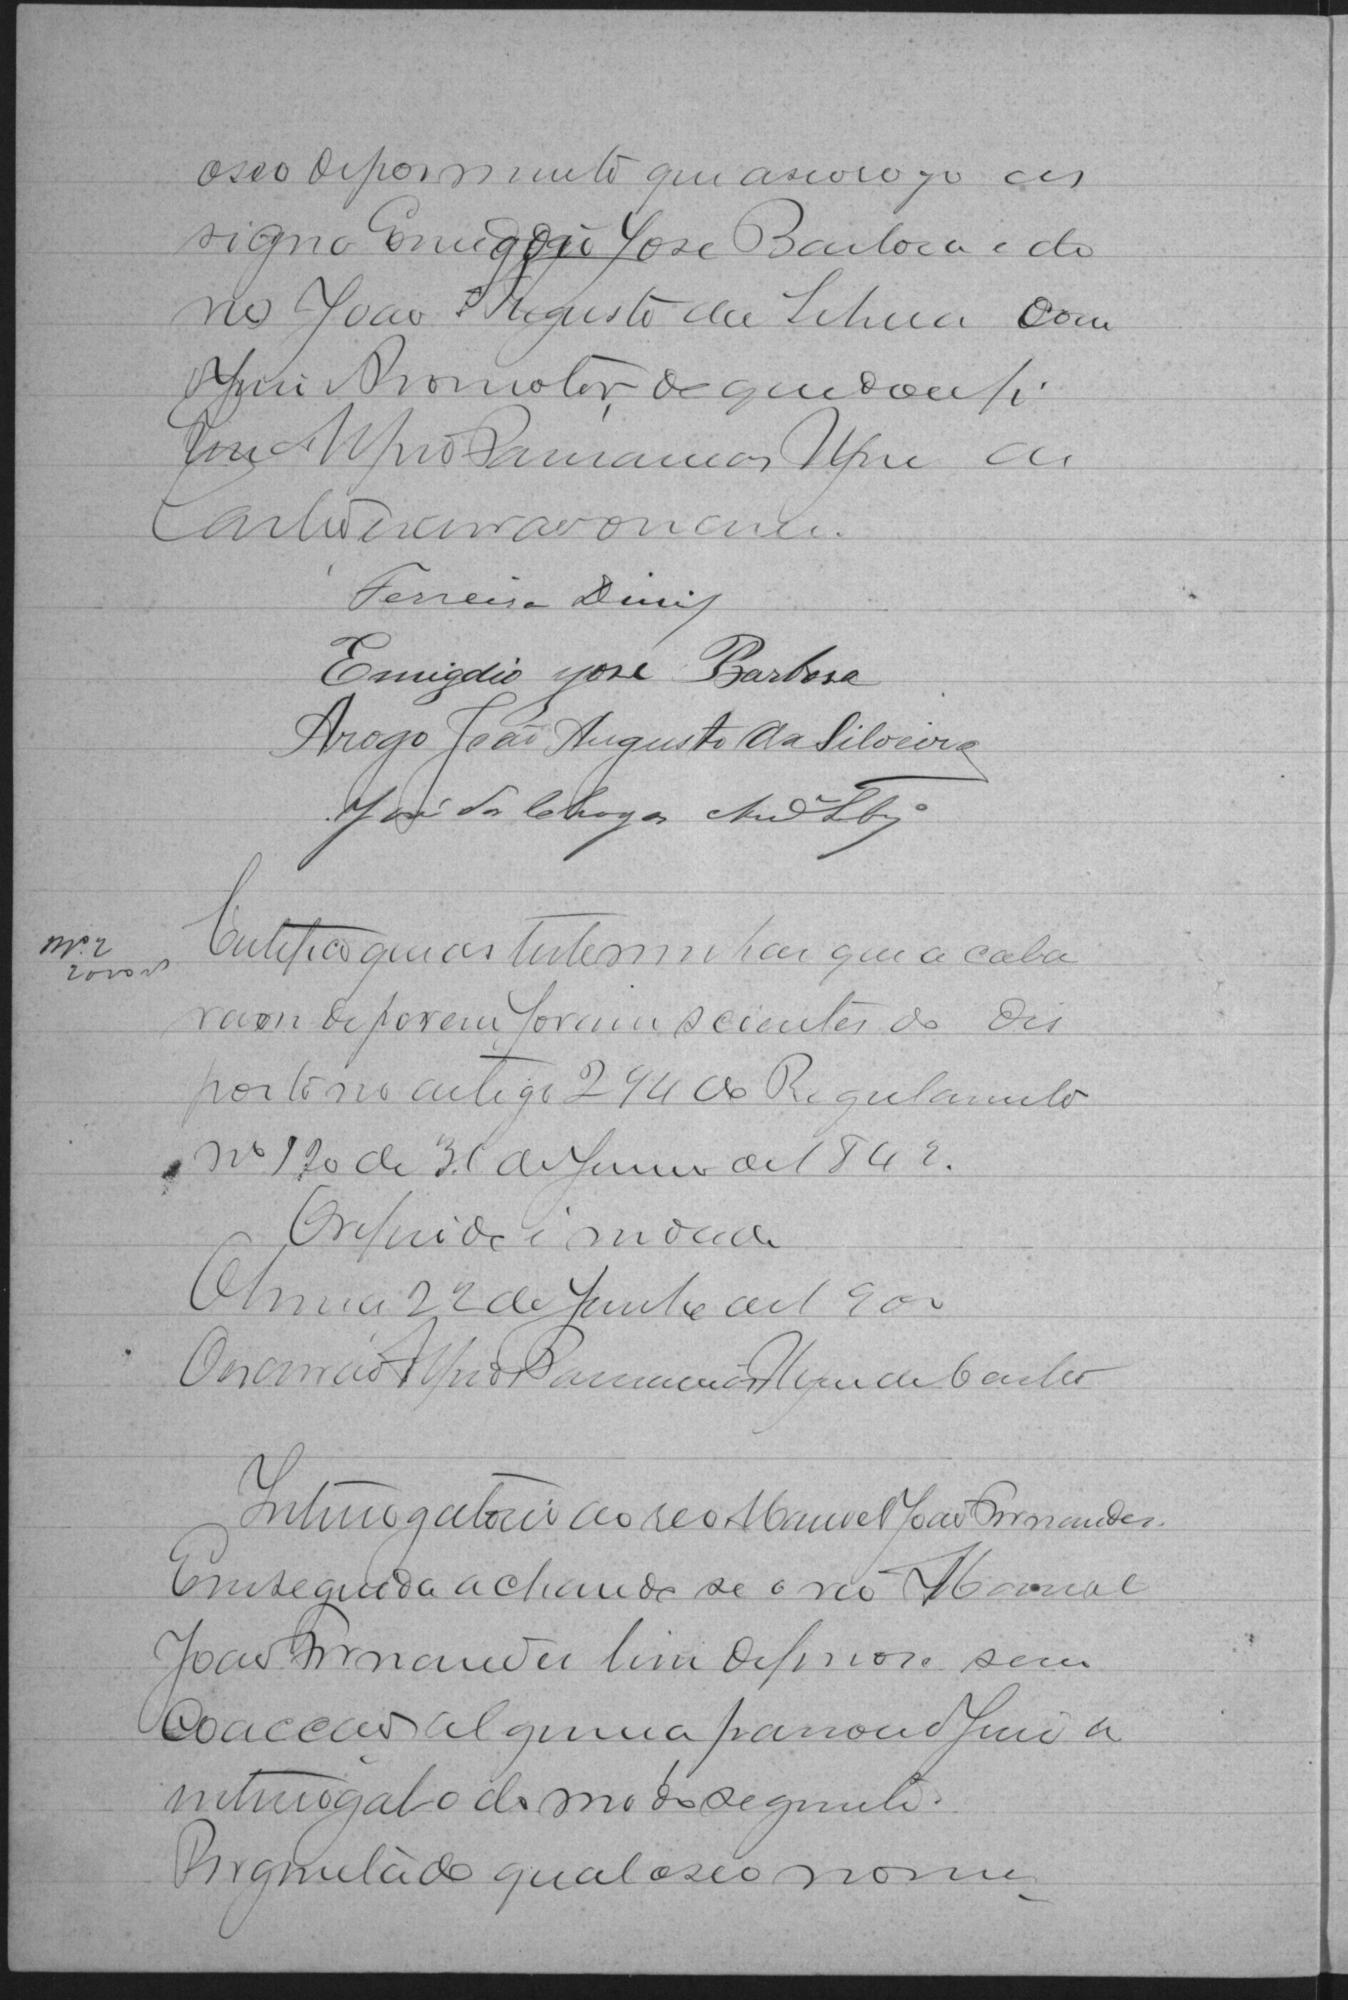 o seo depoimento que a seo rogo as
signa Emigdio Jose Barbosa e do
reo João Augusto da Silveira com
o Juiz e Promotor, do que dou fé.
Eu
Castro escrivão o escrevi.
Ferreira Diniz
Emigdio José Barbosa
Arogo João Augusto da Silveira
José das Chagas
Nº 2
Certifico que as testemunhas que acaba
ram de porem foram scientes do dis
posto no artigo 294 do Regulamento
nº 120 de 31 de Janeiro de 1842.
O referido é verdade
22 de Junho de 1900
O escrivão de Castro
Interrogatorio ao reo Manoel João Fernandes.
Em seguida achando se o reo Manoel
João Fernandes livre de ferros e sem
coacção alguma passou o Juiz a
interrogal-o do modo seguinte:
Perguntado qual o seo nome,